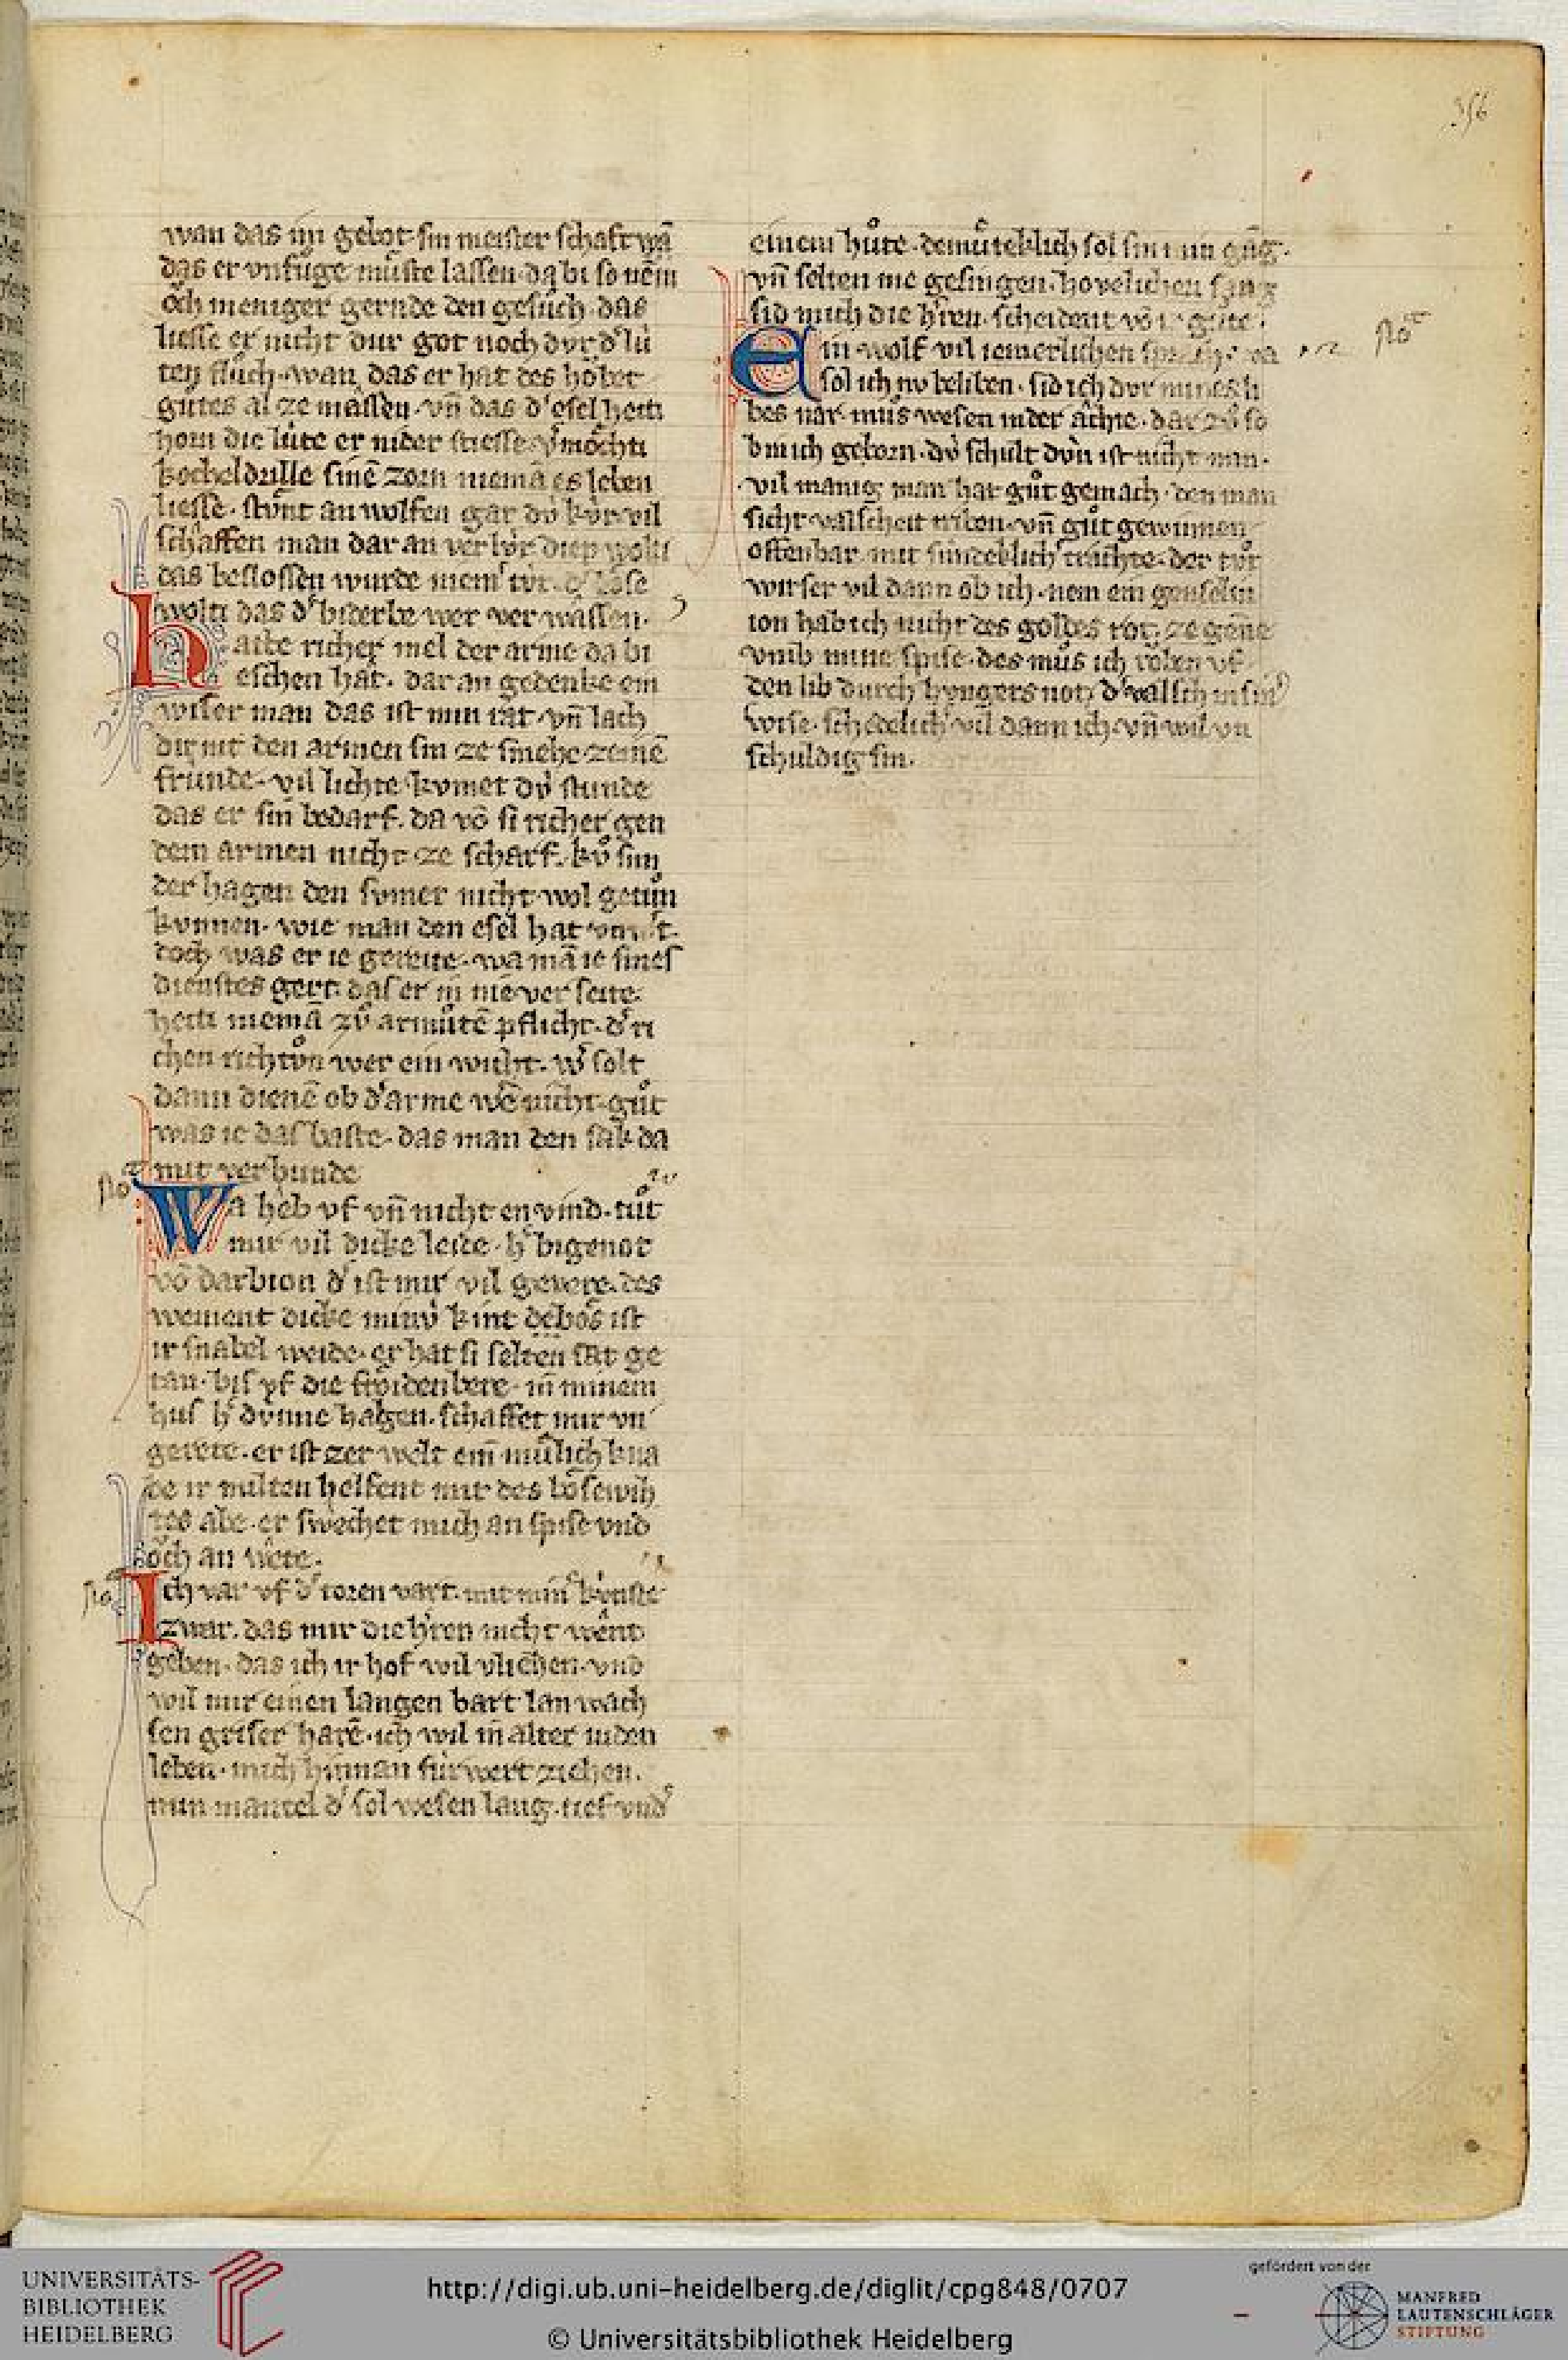 356
wan das im gebot sin meister schaft wā
das er vnfůge můste lassen da bi so nēm
och meniger gernde den gesůch das
liesse er nicht dur got noch dvr d' lú
ten flůch wan das er hat des höbet
gůtes al ze massen vn̄ das d' esel hetti
horn die lúte er nider stiesse
kocheldrille sinē zorn niemā es leben
liesse stůnt an wolfen gar dv́ kv́r vil
schaffen man dar an verlúr diep wolti
das beslossen wurde niem' tv́r d' böse
wolti das d' biderbe wer verwassen
Hatte richer mel der arme da bi
eschen hat dar an gedenke ein
wiser man das ist min rat vn̄ lach
dir nit den armen sin ze smehe zeinē
frunde vil lichte kvmet dv́ stunde
das er sin bedarf da vō si richer gen
dem armen nicht ze scharf kv́ sun
der hagen den svmer nicht wol getůn
kvnnen wie man den esel hat
doch was er ie gereite wa mā ie sines
dienstes gert das er in nie verseite
hetti niemā zů armůtē pflicht d' ri
chen richtůn wer ein wicht w' solt
dann dienē ob d' arme wē nicht gůt
was ie das baste das man den sak da
mit verbunde
Wa heb vf vn̄ nicht en vind tůt
mir vil dicke leide h' bigenot
vō darbion d' ist mir vil gevere des
weinent dicke minv́ kint bös ist
ir snabel weide er hat si selten sat ge
tan bis vf die fröidenbere in minem
hus h' dv́nne haben schaffet mir vn
gerete er ist zer welt ein mv́lich kna
be ir milten helfent mir des bösewih
tes abe er swechet mich an spise vnd
och an wete
Ich var vf d' toren vart mit min' kv́nste
zwar das mir die h'ren nicht wēnt
geben das ich ir hof wil vliehen vnd
wil mir einen langen bart lan wach
sen griser harē ich wil in alter iuden
leben mich hinnan fúrwert ziehen
min mantel d' sol wesen lang tief vnd'
einem hůte demůteklich sol sin min gāg
vn̄ selten me gesingen hovelichen sang
sid mich die h'ren scheident vō ir gůte
Ein wolf vil iemerlichen sprach wa
sol ich nv beliben sid ich dvr mines li
bes nar můs wesen in der achte dar zů so
bin ich geborn dv́ schult dv́n ist nicht min
vil manig man hat gůt gemach den man
sicht valscheit triben vn̄ gůt gewinnen
offenbar mit súndeklich' trachte der tůt
wirser vil dann ob ich nem ein genselin
ion hab ich nicht des goldes rot ze gēne
vmb mine spise des můs ich roben vf
den lib durch hvngers not d' valsch in sin'
wise schedelich' vil dann ich vn̄ wil vn
schuldig sin
UNIVERSITÄTS-
BIBLIOTHEK
HEIDELBERG
http://digi.ub.uni-heidelberg.de/diglit/cpg848/0707
© Universitätsbibliothek Heidelberg
gefördert von der
MANFRED
LAUTENSCHLÄGER
STIFTUNG